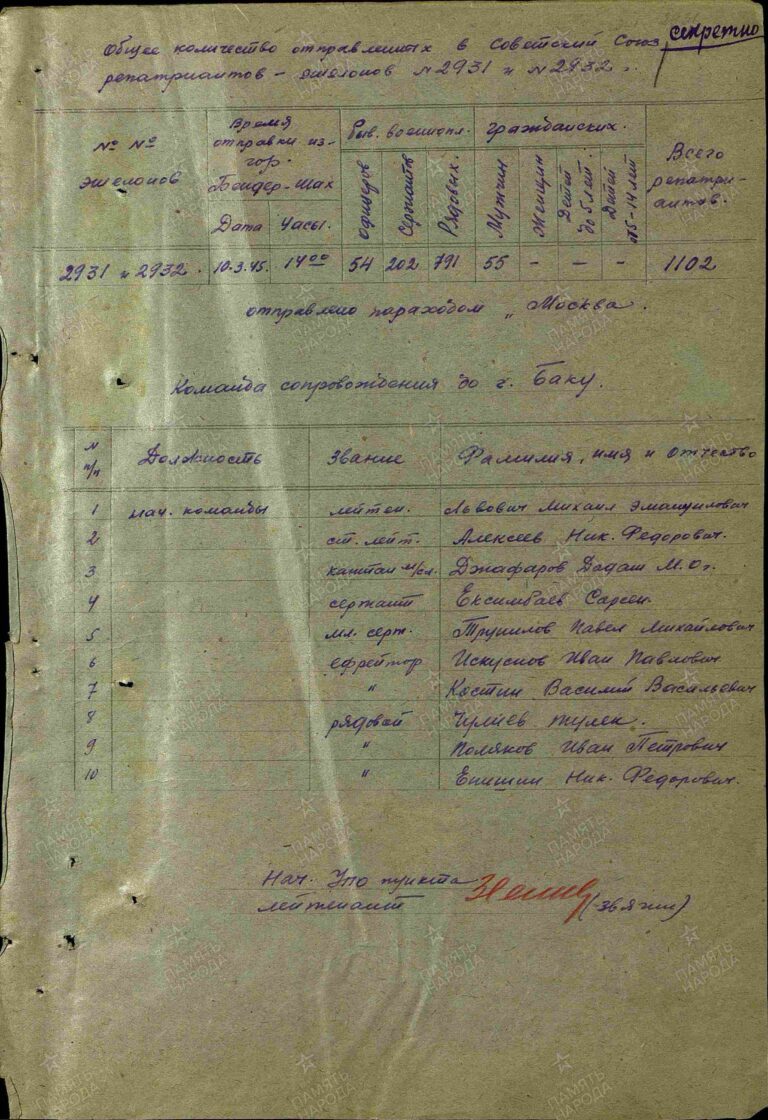 секретно
Общее количество отправленных в Советский Союз
репатриантов - эшелонов № 2931 и № 2932.
№ № эшелонов
Время отправки из гор. Бендер-Шах
Дата Часы.
Быв. военнопл.
офицеров Сержанты Рядовых.
гражданских.
Мужчин Женщин Детей до 5 лет. Детей от 5-14 лет
Всего репатри-антов.
2931 и 2932. 10.3.45. 14 00 54 202 791 55 - - - 1102
отправлено параходом „Москва.
Команда сопровождения до г. Баку.
N п/п Должность Звание Фамилия, имя и отчество
1 нач. команды лейтен. Львович Михаил Эмануилович
2 ст. лейт. Алексеев Ник. Федорович.
3 капитан м/сл. Джафаров Дадаш М.О.
4 сержант Ексимбаев Сарсен.
5 мл. серж. Трунилов Павел Михайлович
6 ефрейтор Искуснов Иван Павлович
7 " Костин Василий Васильевич
8 рядовой Чулиев
9 " Поляков Иван Петрович
10 " Епишин Ник. Федорович.
Нач. пункта
лейтенант (Звягин)
ПАМЯТЬ НАРОДА